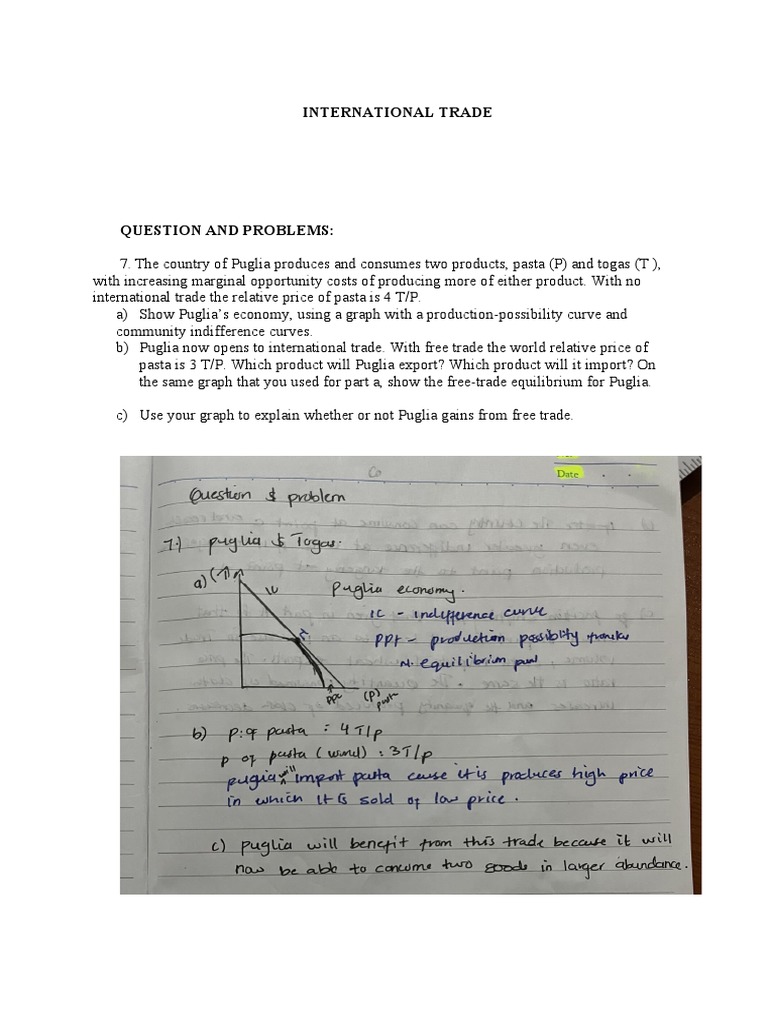 INTERNATIONAL TRADE
QUESTION AND PROBLEMS:
7. The country of Puglia produces and consumes two products, pasta (P) and togas (T ),
with increasing marginal opportunity costs of producing more of either product. With no
international trade the relative price of pasta is 4 T/P.
a) Show Puglia’s economy, using a graph with a production-possibility curve and
community indifference curves.
b) Puglia now opens to international trade. With free trade the world relative price of
pasta is 3 T/P. Which product will Puglia export? Which product will it import? On
the same graph that you used for part a, show the free-trade equilibrium for Puglia.
c) Use your graph to explain whether or not Puglia gains from free trade.
Date
Question & problem
7.) puglia & Togas.
a) (T)
Puglia economy.
IC - indifference curve
PPF - production possiblity
N. equilibrium
PPC (P)
b) p: of pasta : 4T/p
p of pasta (world) : 3T/p
pugia will import pasta cause it is produces high price
in which it is sold of low price.
c) puglia will benefit from this trade because it will
now be able to concume two goods in larger abundance.